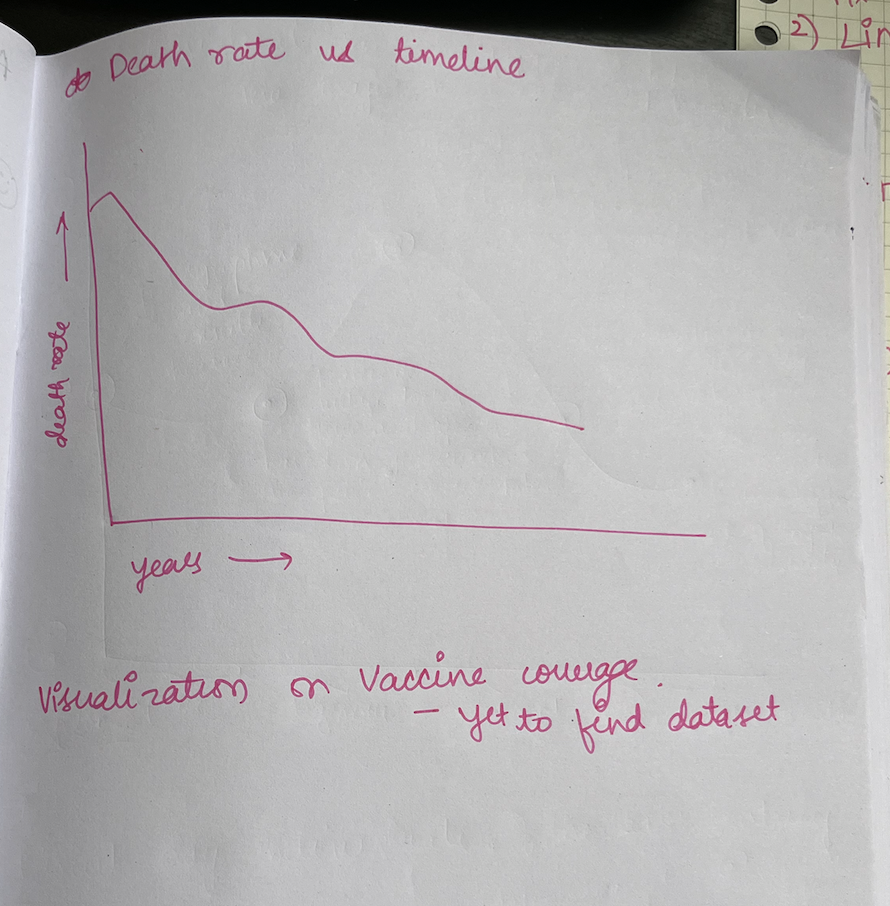 Death rate vs timeline
2) Lin
death rate
years
Visualization on Vaccine coverage.
- yet to find dataset